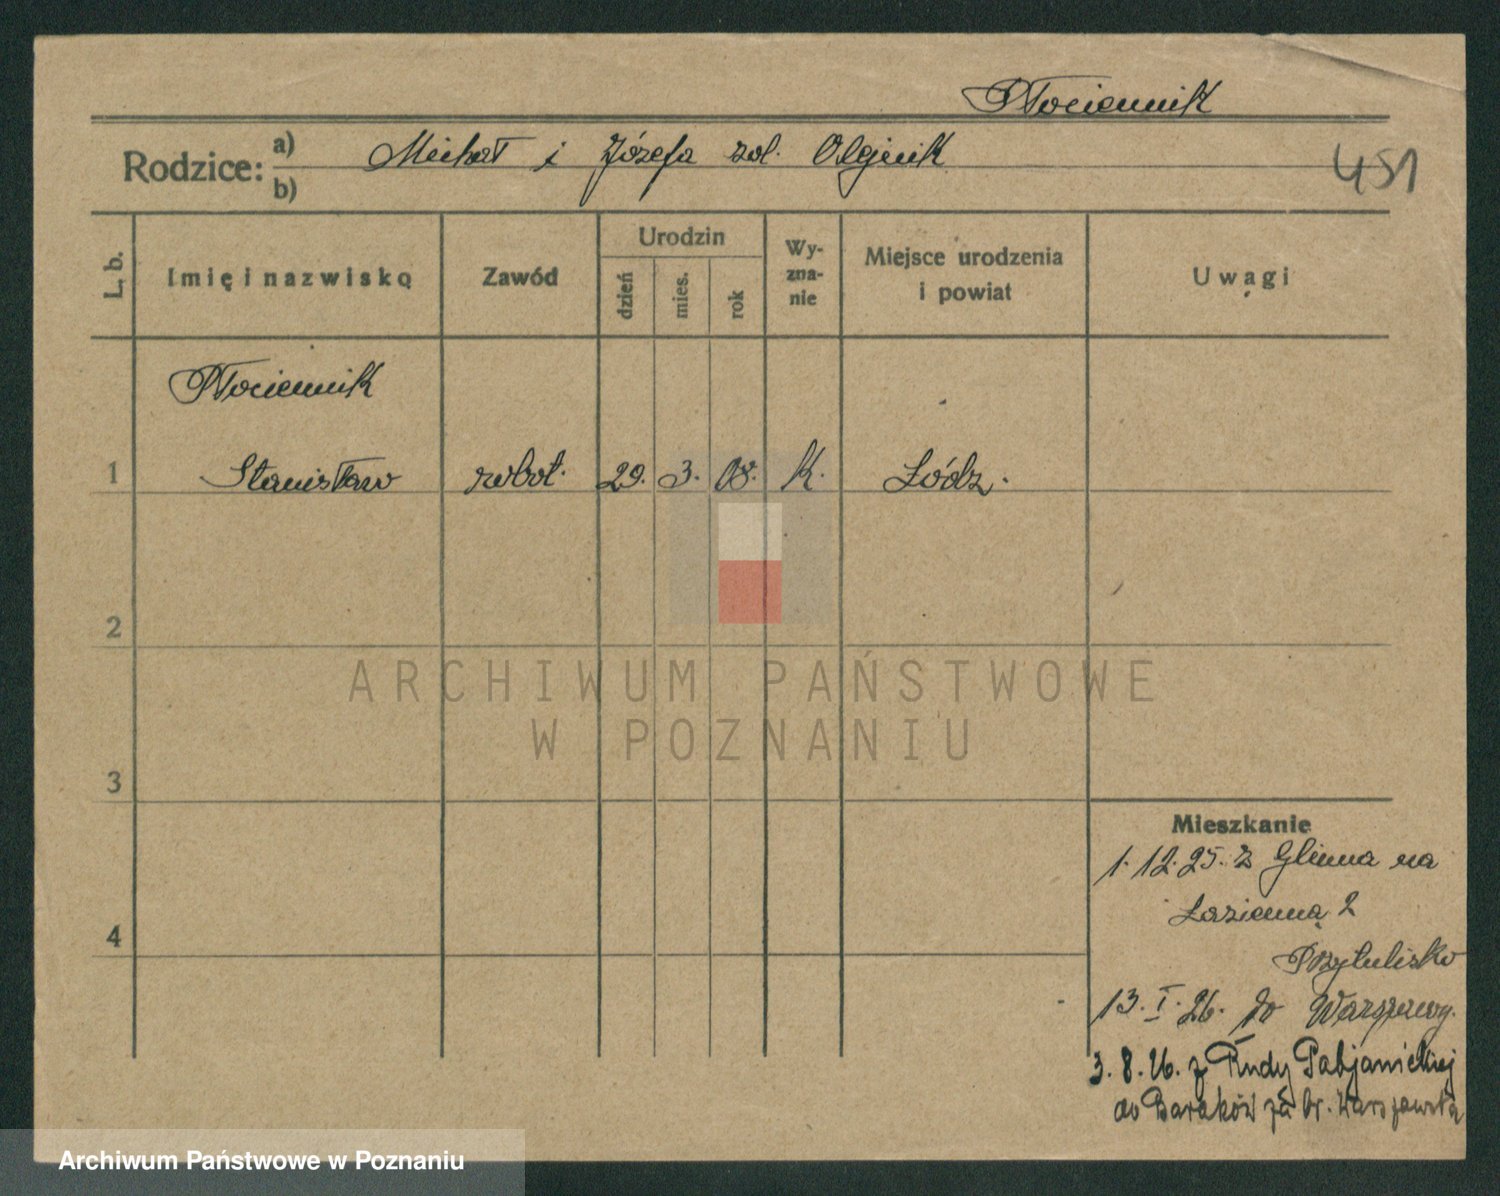 Płociennik
Rodzice: a) Michał i Józefa zol. Olejnik
b)
451
L. b.
Imię i nazwisko
Zawód
Urodzin
dzień
mies.
rok
Wy-
zna-
nie
Miejsce urodzenia
i powiat
Uwagi
Płociennik
1 Stanisław robot. 29. 3. 08. k. Łódz.
2
3
4
ARCHIWUM PAŃSTWOWE
W POZNANIU
Mieszkanie
1.12.25. z Glinna na
Łazienną 2
Przytulisko
13.I.26. do Warszawy.
3.8.26. z Rudy Pabjanickiej
do Baraków za br. Warszawską
Archiwum Państwowe w Poznaniu